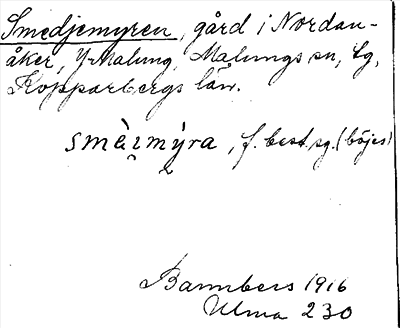 Smedjemyren, gård i Nordan-
åker, Y-Malung, Malungs sn, Lg,
Kopparbergs län.
smèi̯mýra, f. best. sg. (böjes)
Bannbers 1916
Ulma 230